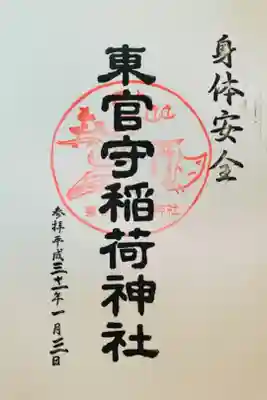 身体安全
東官守稲荷神社
参拝平成三十一年一月三日